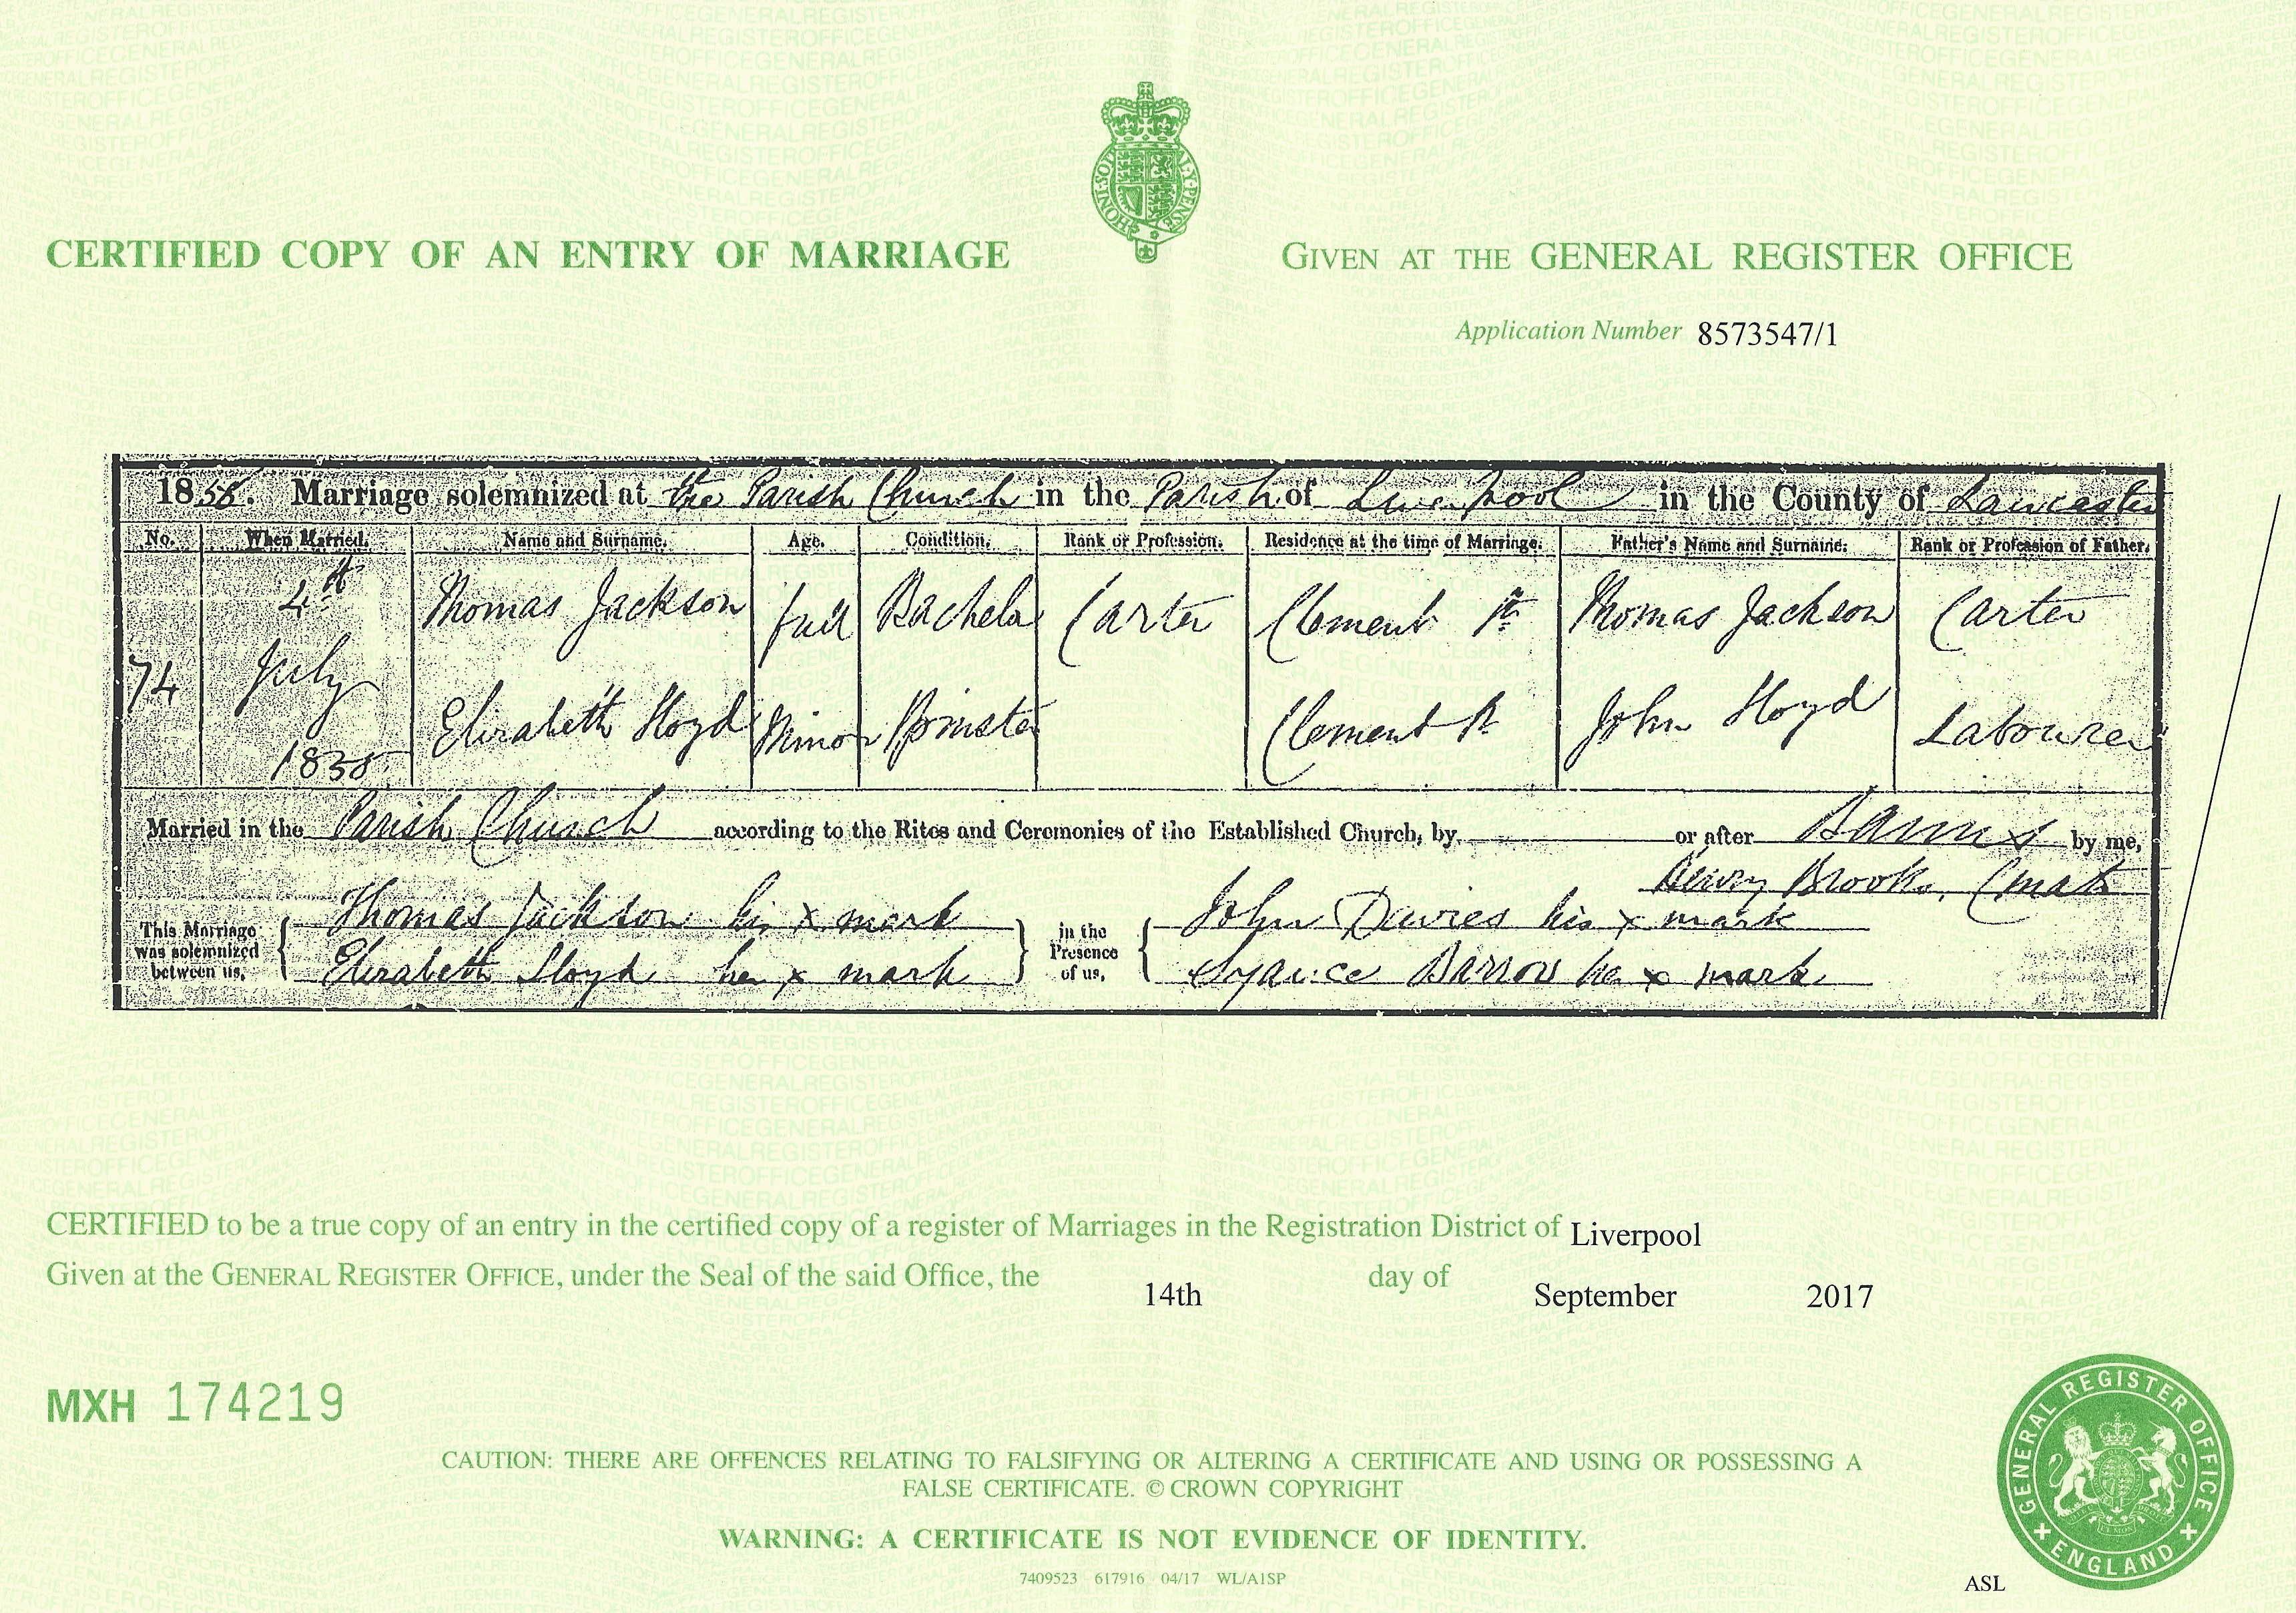 CERTIFIED COPY OF AN ENTRY OF MARRIAGE
GIVEN AT THE GENERAL REGISTER OFFICE
Application Number 8573547/1
1858. Marriage solemnized at the Parish Church in the Parish of Liverpool in the County of Lancaster
No. When Married. Name and Surname. Age. Condition. Rank or Profession. Residence at the time of Marriage. Father's Name and Surname. Rank or Profession of Father.
74
4th July
Thomas Jackson full Bachelor Carter Clement St Thomas Jackson Carter
Elizabeth Lloyd Minor Spinster Clement St John Lloyd Labourer
Married in the Parish Church according to the Rites and Ceremonies of the Established Church, by or after Banns by me,
Henry Brooks, Curate
This Marriage was solemnized between us, { Thomas Jackson his x mark } in the Presence of us, { John Davies his x mark
Elizabeth Lloyd her x mark Barrow her x mark
CERTIFIED to be a true copy of an entry in the certified copy of a register of Marriages in the Registration District of Liverpool
Given at the GENERAL REGISTER OFFICE, under the Seal of the said Office, the 14th day of September 2017
MXH 174219
CAUTION: THERE ARE OFFENCES RELATING TO FALSIFYING OR ALTERING A CERTIFICATE AND USING OR POSSESSING A
FALSE CERTIFICATE. © CROWN COPYRIGHT
WARNING: A CERTIFICATE IS NOT EVIDENCE OF IDENTITY.
7409523 617916 04/17 WL/A1SP
ASL
GENERAL REGISTER OFFICE
ENGLAND